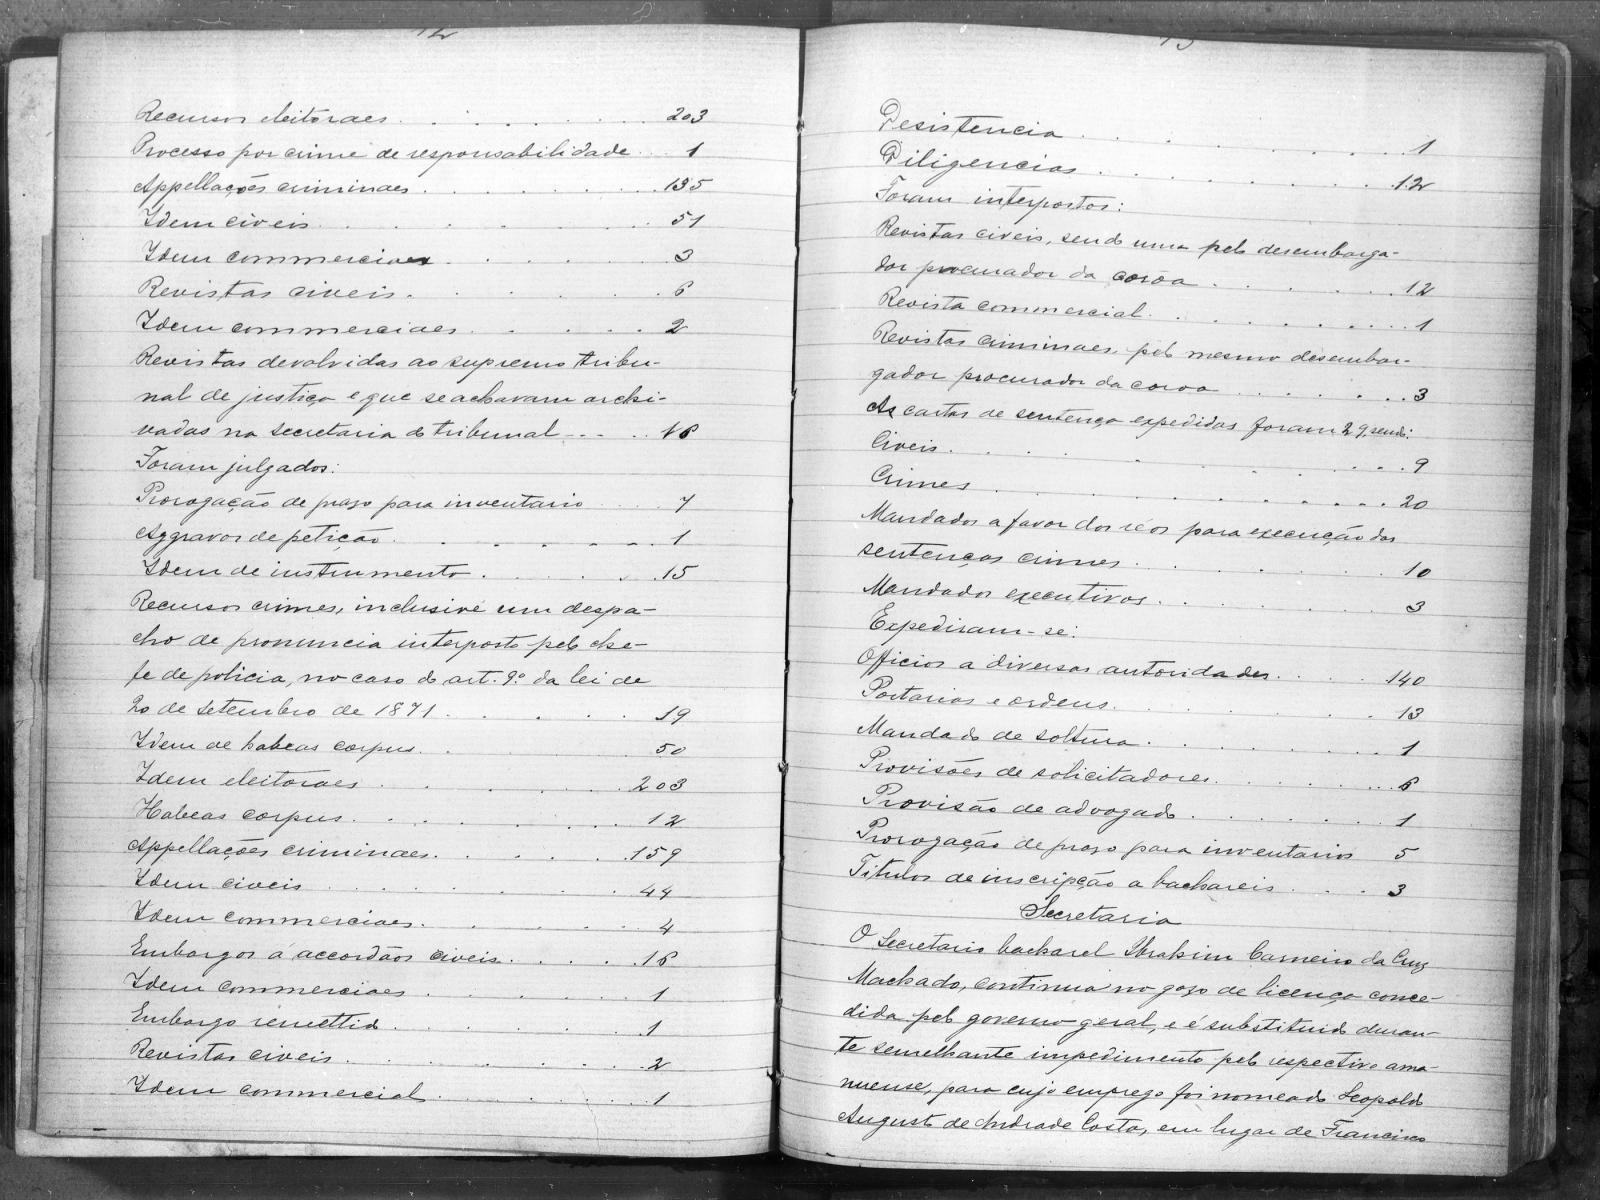 Recursos eleitoraes . . . . . . . 203
Processo por crime de responsabilidade . . 1
Appellações criminaes . . . . . . 135
Idem civeis . . . . . . . . 51
Idem commerciaes . . . . . . 3
Revistas civeis . . . . . . . 6
Idem commerciaes . . . . . . 2
Revistas devolvidas ao supremo tribu-
nal de justiça e que se achavam archi-
vadas na secretaria do tribunal . . . . 16
Foram julgados:
Prorogação de praso para inventario . . . . 7
Aggravos de petição . . . . . . . 1
Idem de instrumento . . . . . 15
Recursos crimes, inclusive um despa-
cho de pronuncia interposto pelo che-
fe de policia, no caso do art. 9º da lei de
20 de setembro de 1871 . . . . . . 19
Idem de habeas corpus . . . . . . 50
Idem eleitoraes . . . . . . . 203
Habeas corpus . . . . . . . 12
Appellações criminaes . . . . . . 159
Idem civeis . . . . . . . . 44
Idem commerciaes . . . . . . 4
Embargos á accordãos civeis . . . . . 16
Idem commerciaes . . . . . . 1
Embargo remettido . . . . . . 1
Revistas civeis . . . . . . . 2
Idem commercial . . . . . . 1
13
Desistencia . . . . . . . . 1
Diligencias . . . . . . . . 12
Foram interpostos:
Revistas civeis, sendo uma pelo desembarga-
dor procurador da corôa . . . . . . 12
Revista commercial . . . . . . . 1
Revistas criminaes, pelo mesmo desembar-
gador procurador da coroa . . . . . . 3
As cartas de sentença expedidas foram 29, sendo:
Civeis . . . . . . . . . 9
Crimes . . . . . . . . . 20
Mandados a favor dos réos para execução das
sentenças crimes . . . . . . . 10
Mandados executivos . . . . . . 3
Expediram-se:
Officios a diversas autoridades . . . . 140
Portarias e ordens . . . . . . . 13
Mandado de soltura . . . . . . 1
Provisões de solicitadores . . . . . 6
Provisão de advogado . . . . . . 1
Prorogação de praso para inventarios 5
Titulos de inscripção a bachareis . . . . 3
Secretaria
O Secretario bacharel Ibrahim Carneiro da Cruz
Machado, continua no goso de licença conce-
dida pelo governo geral, e é substituido duran-
te semelhante impedimento pelo respectivo ama-
nuense, para cujo emprego foi nomeado Leopoldo
Augusto de Andrade Costa, em lugar de Francisco